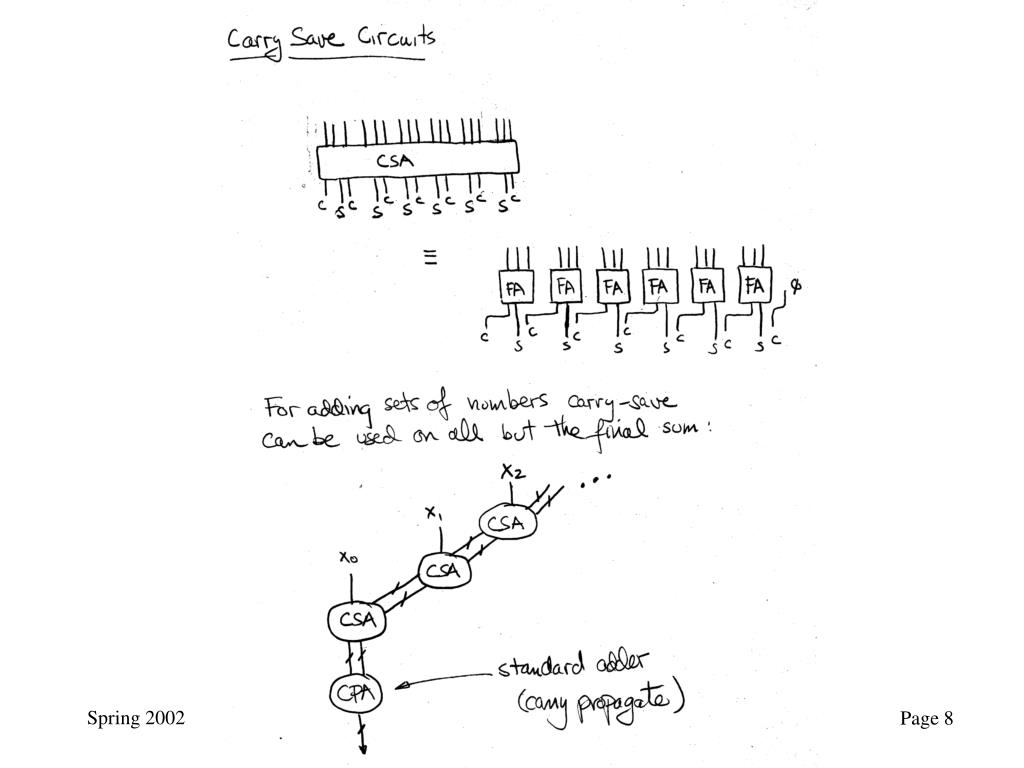 Carry Save Circuits
CSA
C S C S C S C S C S C S C
≡
FA FA FA FA FA FA φ
C S C S C S C S C S C S C
For adding sets of numbers carry-save
can be used on all but the final sum:
X2 ...
X1 CSA
X0 CSA
CSA
standard adder
CPA (carry propagate)
Spring 2002 Page 8